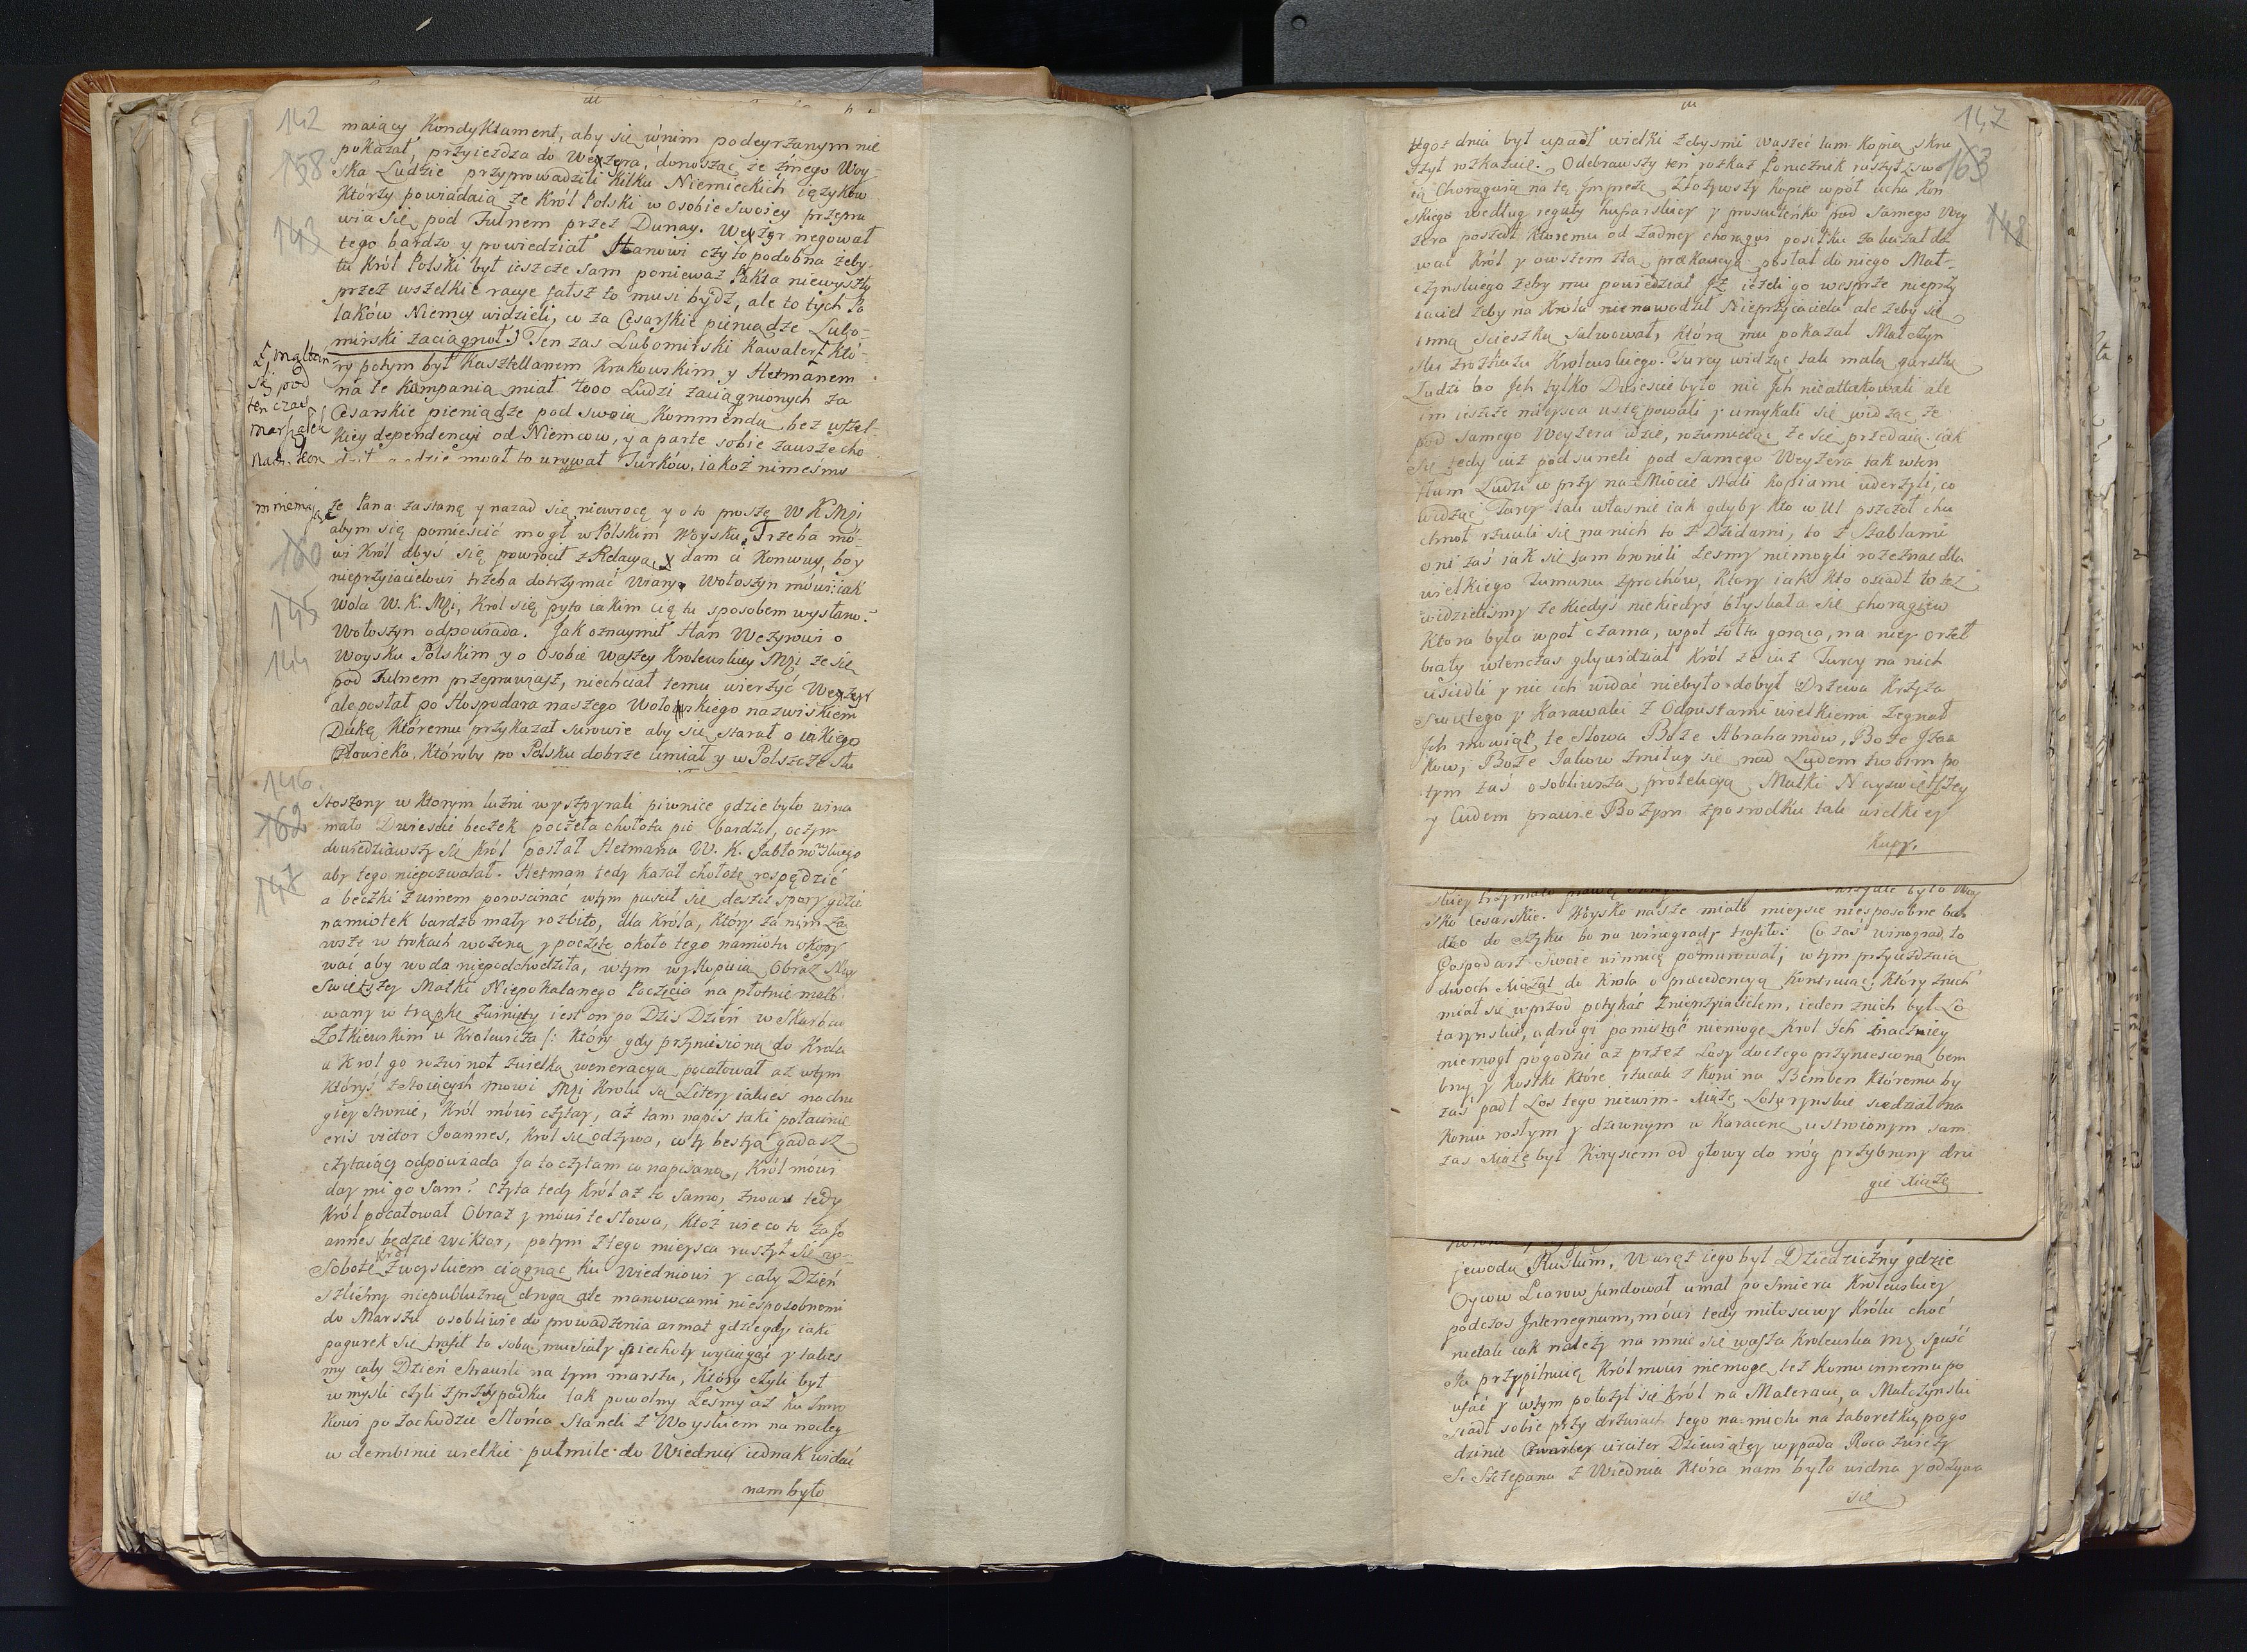 142
158
143
maiący KondyKtament, aby się w nim podeyrzanym nie
pokazał, przyieżdza do Wezyra, donosząc że z mego Woy-
ska Ludzie przyprowadzili kilku Niemieckich ięzyków
Którzy powiadaią że Król Polski w osobie swoiey przepra
wia się pod Tulnem przez Dunay. Wezyr negował
tego bardzo y powiedział Hanowi czy to podobna żeby
tu Król Polski był ieszcze sam ponieważ Pakta niewyszły
przez wszelkie racye fałsz to musi bydź, ale to tych Po
laków Niemcy widzieli, co za Cesarskie pieniądze Lubo-
mirski zaciągnoł) Ten zas Lubomirski Kawaler Któ-
ry potym był Kasztellanem Krakowskim y Hetmanem
na te Kampania miał 4000 Ludzi zaciągnionych za
Cesarskie pieniądze pod swoią Kommendą bez wszel-
kiey dependencyi od Niemcow, y a parte sobie zawsze cho
dził gdzie mogł to urywał Turków, iakoż nimeśmy
Maltań
ski pod
ten czas
marszałek
Nad. Kor.
mniemaiąc
że Pana zastanę y nazad się niewrocę y o to proszę W K Mci
abym się pomieścić mogł w Polskim Woysku. Trzeba mó-
wi Król abyś się powrocił z Relacyą, y dam ci Konwuy, bo y
nieprzyiacielowi trzeba dotrzymać Wiary. Wołoszyn mówi: iak
Wola W. K. Mci, Krol się pyta iakim cię tu sposobem wysłano?
Wołoszyn odpowiada. Jak oznaymił Han Wezyrowi o
Woysku Polskim y o Osobie Waszey Krolewskiey Mci że się
pod Tulnem przeprawiasz, niechciał temu wierzyć Wezyr
ale posłał po Hospodara naszego Wołoskiego nazwiskiem
Dukę Któremu przykazał surowie aby się starał o iakiego
Człowieka, Któryby po Polsku dobrze umiał y w Polszcze słu
160
145
144
146
162
147
Kłosztorny w Ktorym luźni wyszpyrali piwnice gdzie było wina
mało Dwieście beczek poczęła chołota pić bardzo, oczym
dowiedziawszy się Król posłał Hetmana W. K. Jabłonowskiego
aby tego niepozwalał. Hetman tedy kazał chołotę rospędzić
a beczki z winem porościnać wtym puścił się deszcz spory gdzie
namiotek bardzo mały rozbito, dla Króla, Który za nim za
wsze w trokach wożono y poczęto około tego namiotu okopy
wać aby woda niepodchodziła, wtym wykopuią Obraz Nay
Swiętszey Matki Niepokalanego Poczęcia na płotnie malo
wany w trąbkę zwinięty iest on po Dzis Dzień w Skarbcu
Zołkiewskim u Krolewicza/: Który gdy przyniesiono do Krola
a Krol go rozwinoł z wielką weneracyą pocałował aż wtym
Któryś z stoiących mowi Mci Krolu są Litery iakieś na dru
giey stronie, Król mówi czytay, aż tam napis taki połacinie
eris victor Joannes, Krol się odzywa, co ty bestya gadasz
czytaiący odpowiada Ja to czytam co napisano, Król mówi
day mi go sam? czyta tedy Król aż to samo, znowu tedy
Król pocałował Obraz y mówi te słowa, Ktoż wie co to za Jo
annes będzie wiktor, potym z tego mieysca ruszył się w
Sobotę Krol z woyskiem ciągnąc Ku Wiedniowi y cały Dzień
szliśmy niepubliczną drogą ale manowcami niesposobnemi
do Marszu osobliwie do prowadzenia armat gdzie gdy iaki
pagurek się trafił to sobą musiały piechoty wyciągać y takes
my cały Dzień strawili na tym marszu, Który czyli był
w mysli czyli z przypadku tak powolny żesmy aż ku Zmro
kowi po zachodzie Słońca staneli z Woyskiem na nocleg
w dembinie wielkie pułmile do Wiednia iednak widać
nam było
147
163
148
tegoż dnia był upadł wielki żebysmi waszeć tam Kopią skru
szył rozkazuię. Odebrawszy ten rozkaz Porucznik ruszył z swo
ią Chorągwią na tę Imprezę, złożywszy Kopie wpół ucha Kon
skiego według reguły husarskiey y prosciuteńko pod Samego Wey
zera poszedł Ktoremu od żadney chorągwi posiłku zakazał da
wać Król y owszem za prekaucyą posłał do niego Mat-
czynskiego żeby mu powiedział Jż ieżeli go wesprze nieprzy
iaciel żeby na Krola nienawodził Nieprzyiaciela ale żeby się
inną scieszką salwował, którą mu pokazał Matczyn
ski z rozkazu Krolewskiego. Turcy widząc tak małą garstkę
Ludzi bo Jch tylko Dwieście było nic Jch nieattakowali ale
im ieszcze mieysca ustępowali y umykali się widząc że
pod samego Weyzera idzie, rozumieiąc że się przedaią. iak
się tedy iuż podsuneli pod Samego Weyzera tak w ten
tłum Ludzi w przy na-Miocie Stali Kopiami uderzyli, co
widząc Turcy tak własnie iak gdyby Kto w Ul pszczoł chu
chnoł rzucili się na nich to z Dzidami, to z Szablami
oni zaś iak się tam bronili żesmy niemogli rozeznać dla
wielkiego tumanu z prochów, Ktory iak Kto osiadł to też
widzielismy że Kiedyś niekiedyś błyskała się chorągiew
Ktora była wpoł czarna, wpoł żołta gorąco, na niey orzeł
biały wtenczas gdy widział Król że iuż Turcy na nich
wsiedli y nic ich widać niebyło dobył Drzewa Krzyża
Swiętego y Karawaki z Odpustami wielkiemi żegnał
Jch mowiąc te Słowa Boże Abrahamów, Boże Jzaa
ków, Boże Jakow zmiłuy się nad Ludem twoim po
tym zaś osobliwszą protekcyą Matki Nayswiętszey
y Cudem prawie Bożym zposrodku tak wielkiey
Kupy.
sko Cesarskie. Woysko nasze miało mieysce niesposobne bar
dzo do szyku bo na winogrady trafiło. Co zaś winograd, to
Gospodarz swoie winnicę pomurował, wtym przyieżdzaią
dwoch Xiążąt do Krola o precedencyą Kontrując, Który znich
miał się wprzod potykać z nieprzyiacielem, ieden znich był Lo
taryński, a drugi pomistyć niemogę Krol Jch inaczniey
niemogł pogodzić aż przez Losy doczego przyniesiono bem
bny y Kostki Które rzucali z Koni na Bemben Któremu by
zaś padł Los tego niewiem. Xiąże Lotaryńskie siedział na
Koniu rosłym y dzewnym w Karacenę ustroionym sam
zas Xiąże był Kirysiem od głowy do nóg przybrany dru
gie Xiąże
jewoda Ruskim, Waręż iego był Dziedziczny gdzie
Oycow Piarow fundował umał po Smierci Krolewskiey
podczas Interregnum, mówi tedy miłosciwy Królu choć
nietak iak należy na mnie się wasza Krolewska Mć spuść
Ja przypilnuię Król mowi niemogę też Komu innemu po
ufać y wtym położył się Król na Materacu, a Matczynski
siadł sobie przy drzwiach tego na-miotu na taboretku, po go
dzinie circiter Dziewiątey wypada Raca zwieży
S. Szczepana z Wiednia Która nam była widna y odzywa
się